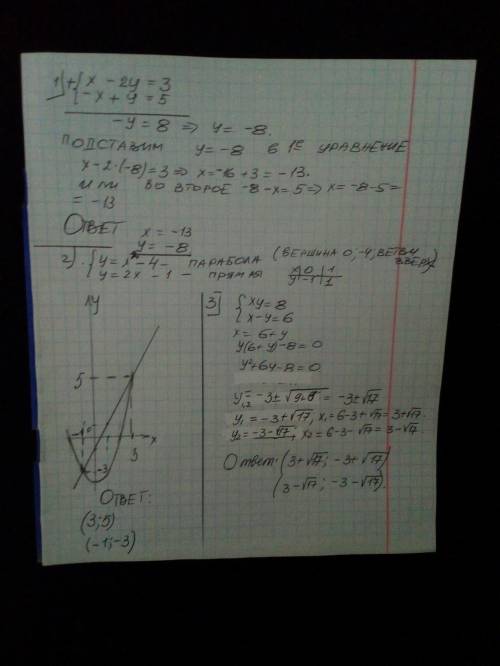 1) + { x - 2y = 3
-x + y = 5
-y = 8 => y = -8.
ПОДСТАВИМ y = -8 в 1ое УРАВНЕНИЕ
x - 2·(-8) = 3 => x = -16 + 3 = -13.
ИЛИ ВО ВТОРОЕ -8 - x = 5 => x = -8 - 5 =
= -13
ОТВЕТ x = -13
y = -8
2). { y = x² - 4 - ПАРАБОЛА (ВЕРШИНА 0; -4; ВЕТВИ ВВЕРХ)
y = 2x - 1 - ПРЯМАЯ
x 0 1
y -1 1
y
5
3
x
-3
ОТВЕТ:
(3; 5)
(-1; -3)
3) { xy = 8
x - y = 6
x = 6 + y
y(6 + y) - 8 = 0
y² + 6y - 8 = 0
y1,2 = -3 ± √9+8 = -3 ± √17
y1 = -3 + √17, x1 = 6 - 3 + √17 = 3 + √17.
y2 = -3 - √17, x2 = 6 - 3 - √17 = 3 - √17.
Ответ: (3 + √17; -3 + √17)
(3 - √17; -3 - √17).